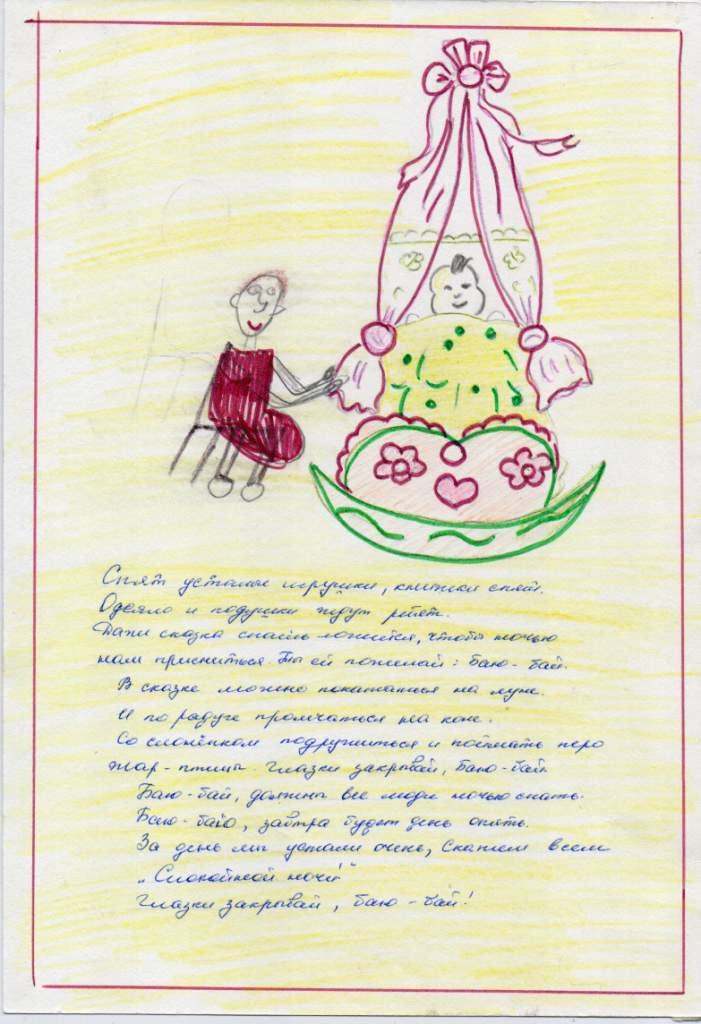 Спят усталые игрушки, книжки спят.
Одеяло и подушки ждут ребят.
Даже сказка спать ложится, чтобы ночью
нам присниться. Ты ей пожелай: баю-бай.
В сказке можно покататься на луне.
И по радуге промчаться на коне.
Со слонёнком подружиться и поймать перо
Жар-птицы. Глазки закрывай, баю-бай.
Баю-бай, должны все люди ночью спать.
Баю-баю, завтра будет день опять.
За день мы устали очень, Скажем всем
"Спокойной ночи"
Глазки закрывай, баю-бай!